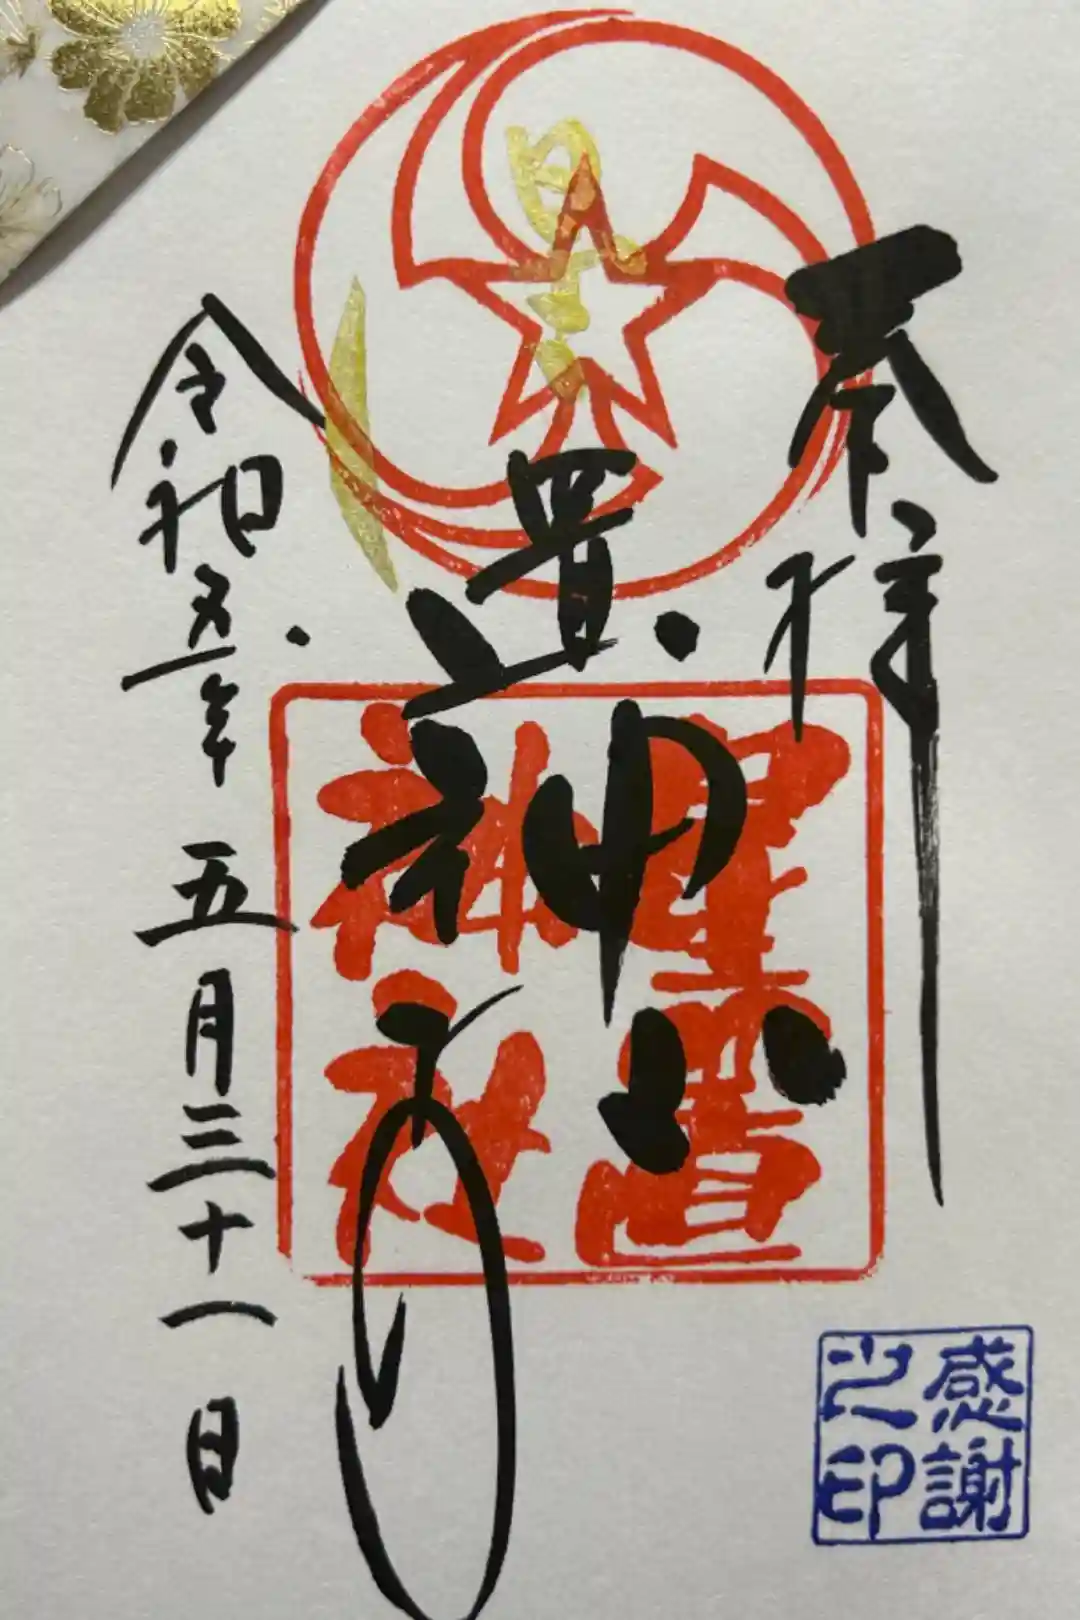 奉拝
星置神社
星置
神社
令和五年五月三十一日
感謝
之印